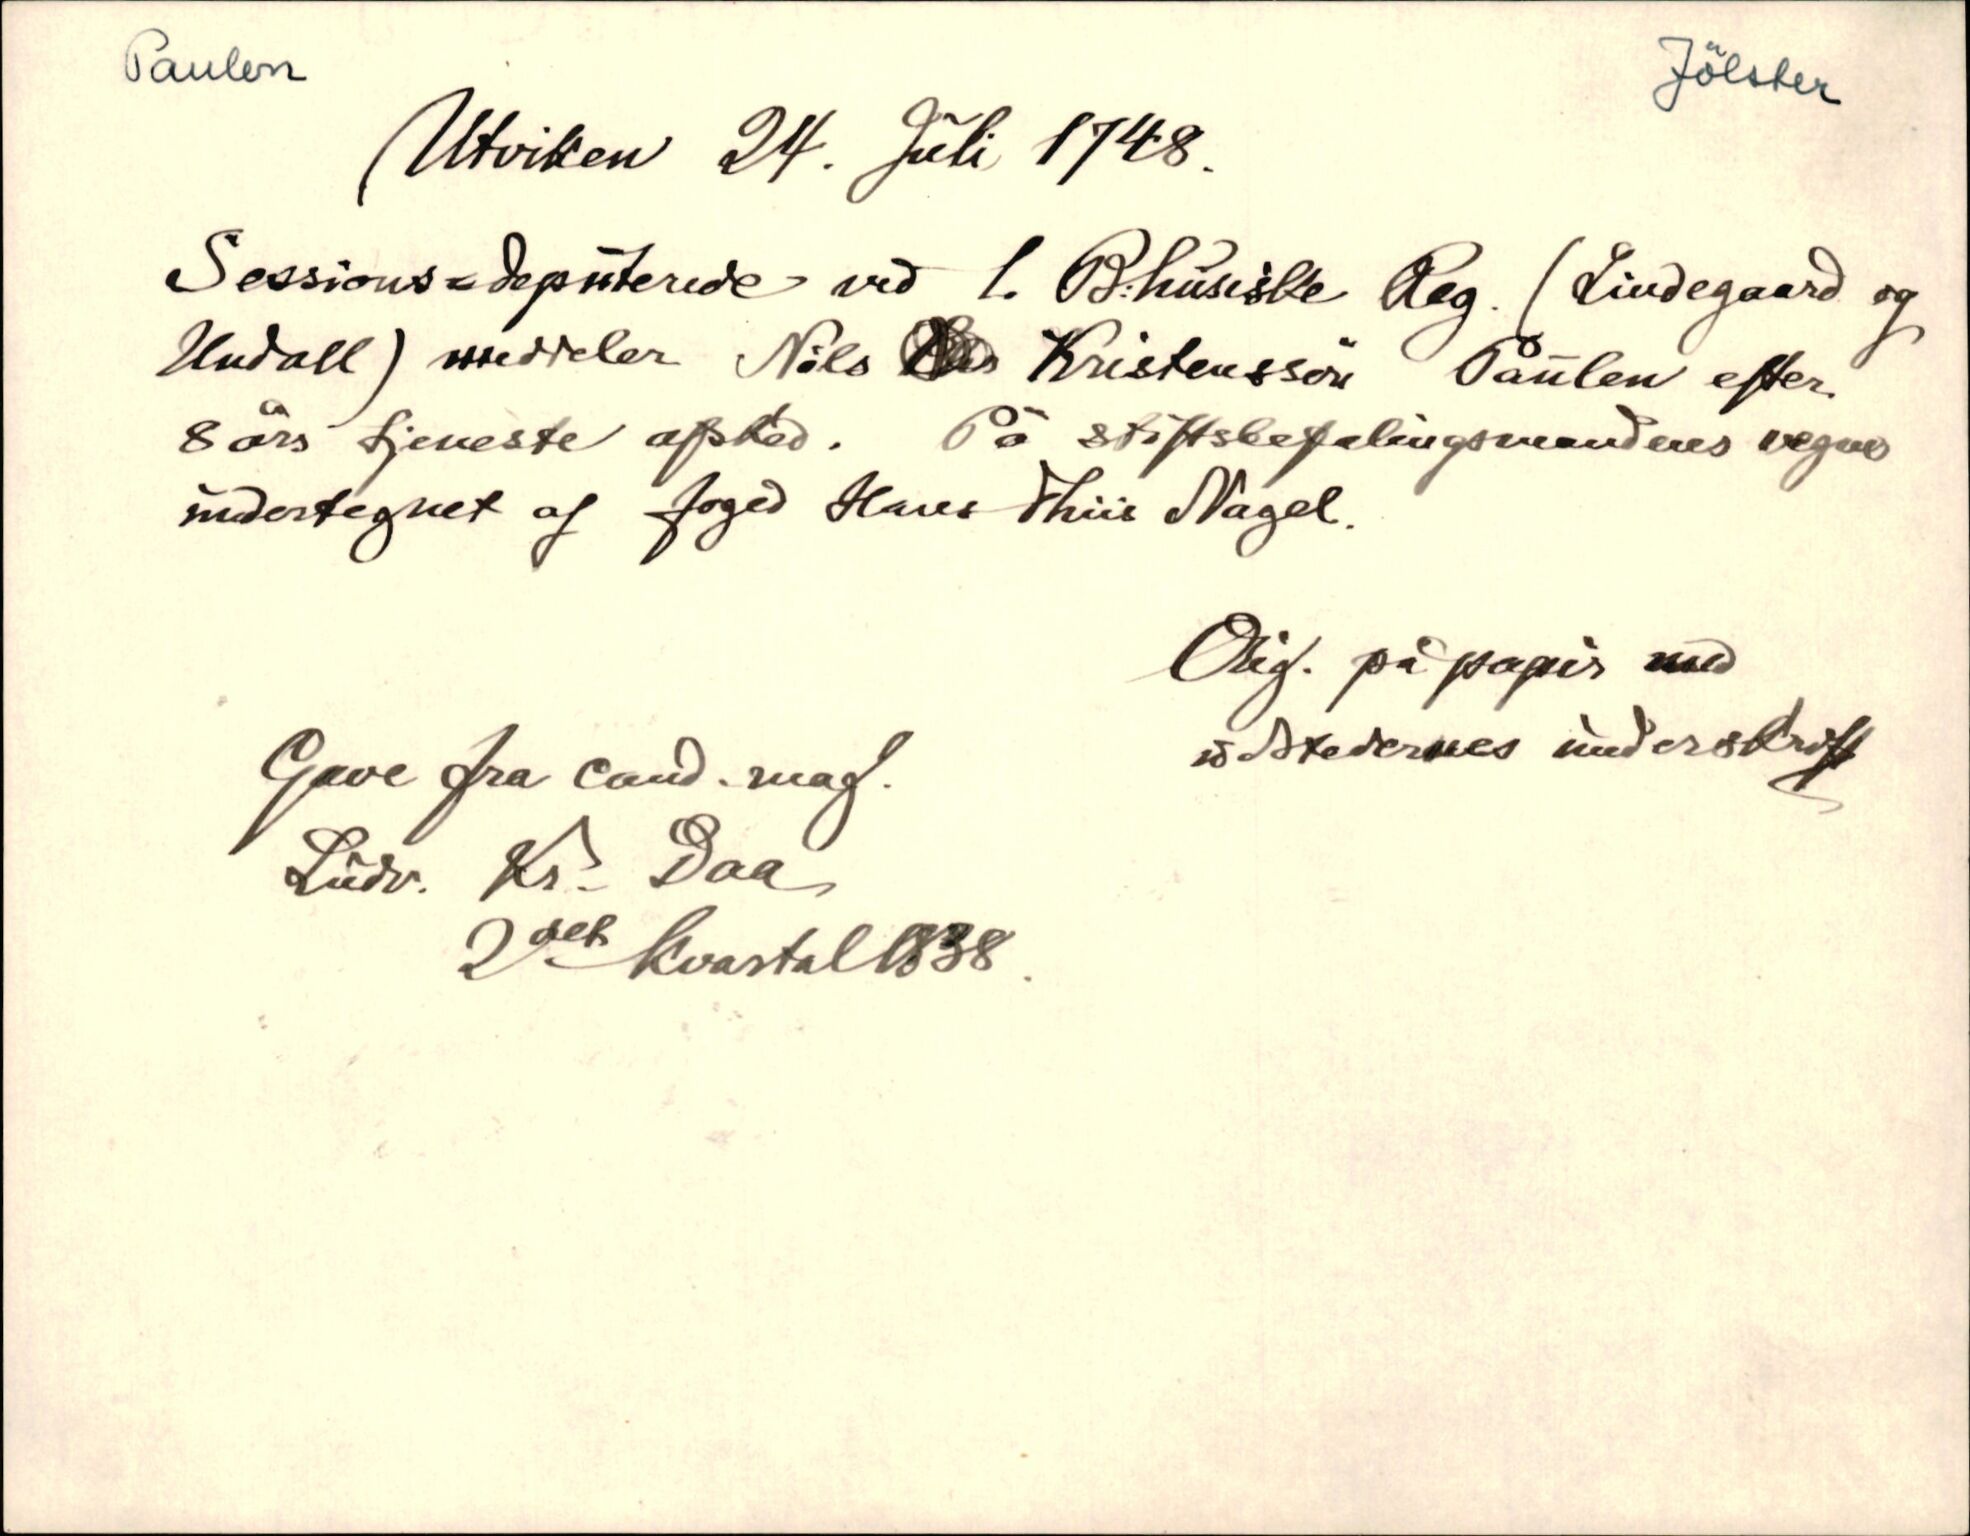 Paulen
Jölster
Utviken 24. Juli 1748.
Sessions-deputerede ved 1. B:husiske Reg. (Lindegaard og
Undall) meddeler Nils Kristenssön Paulen efter
8 års tjeneste afsked. På stiftsbefalingsmandens vegne
undertegnet af foged Hans Thiis Nagel.
Orig. på papir med
udstedernes underskrift
Gave fra cand. mag.
Ludv. Kr. Daa
2det kvartal 1838.